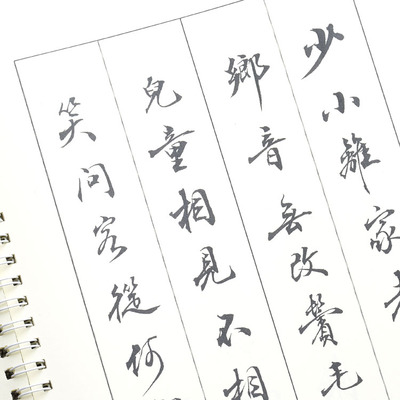 少小離家
鄉音無改鬢毛
兒童相見不相
笑問客從何